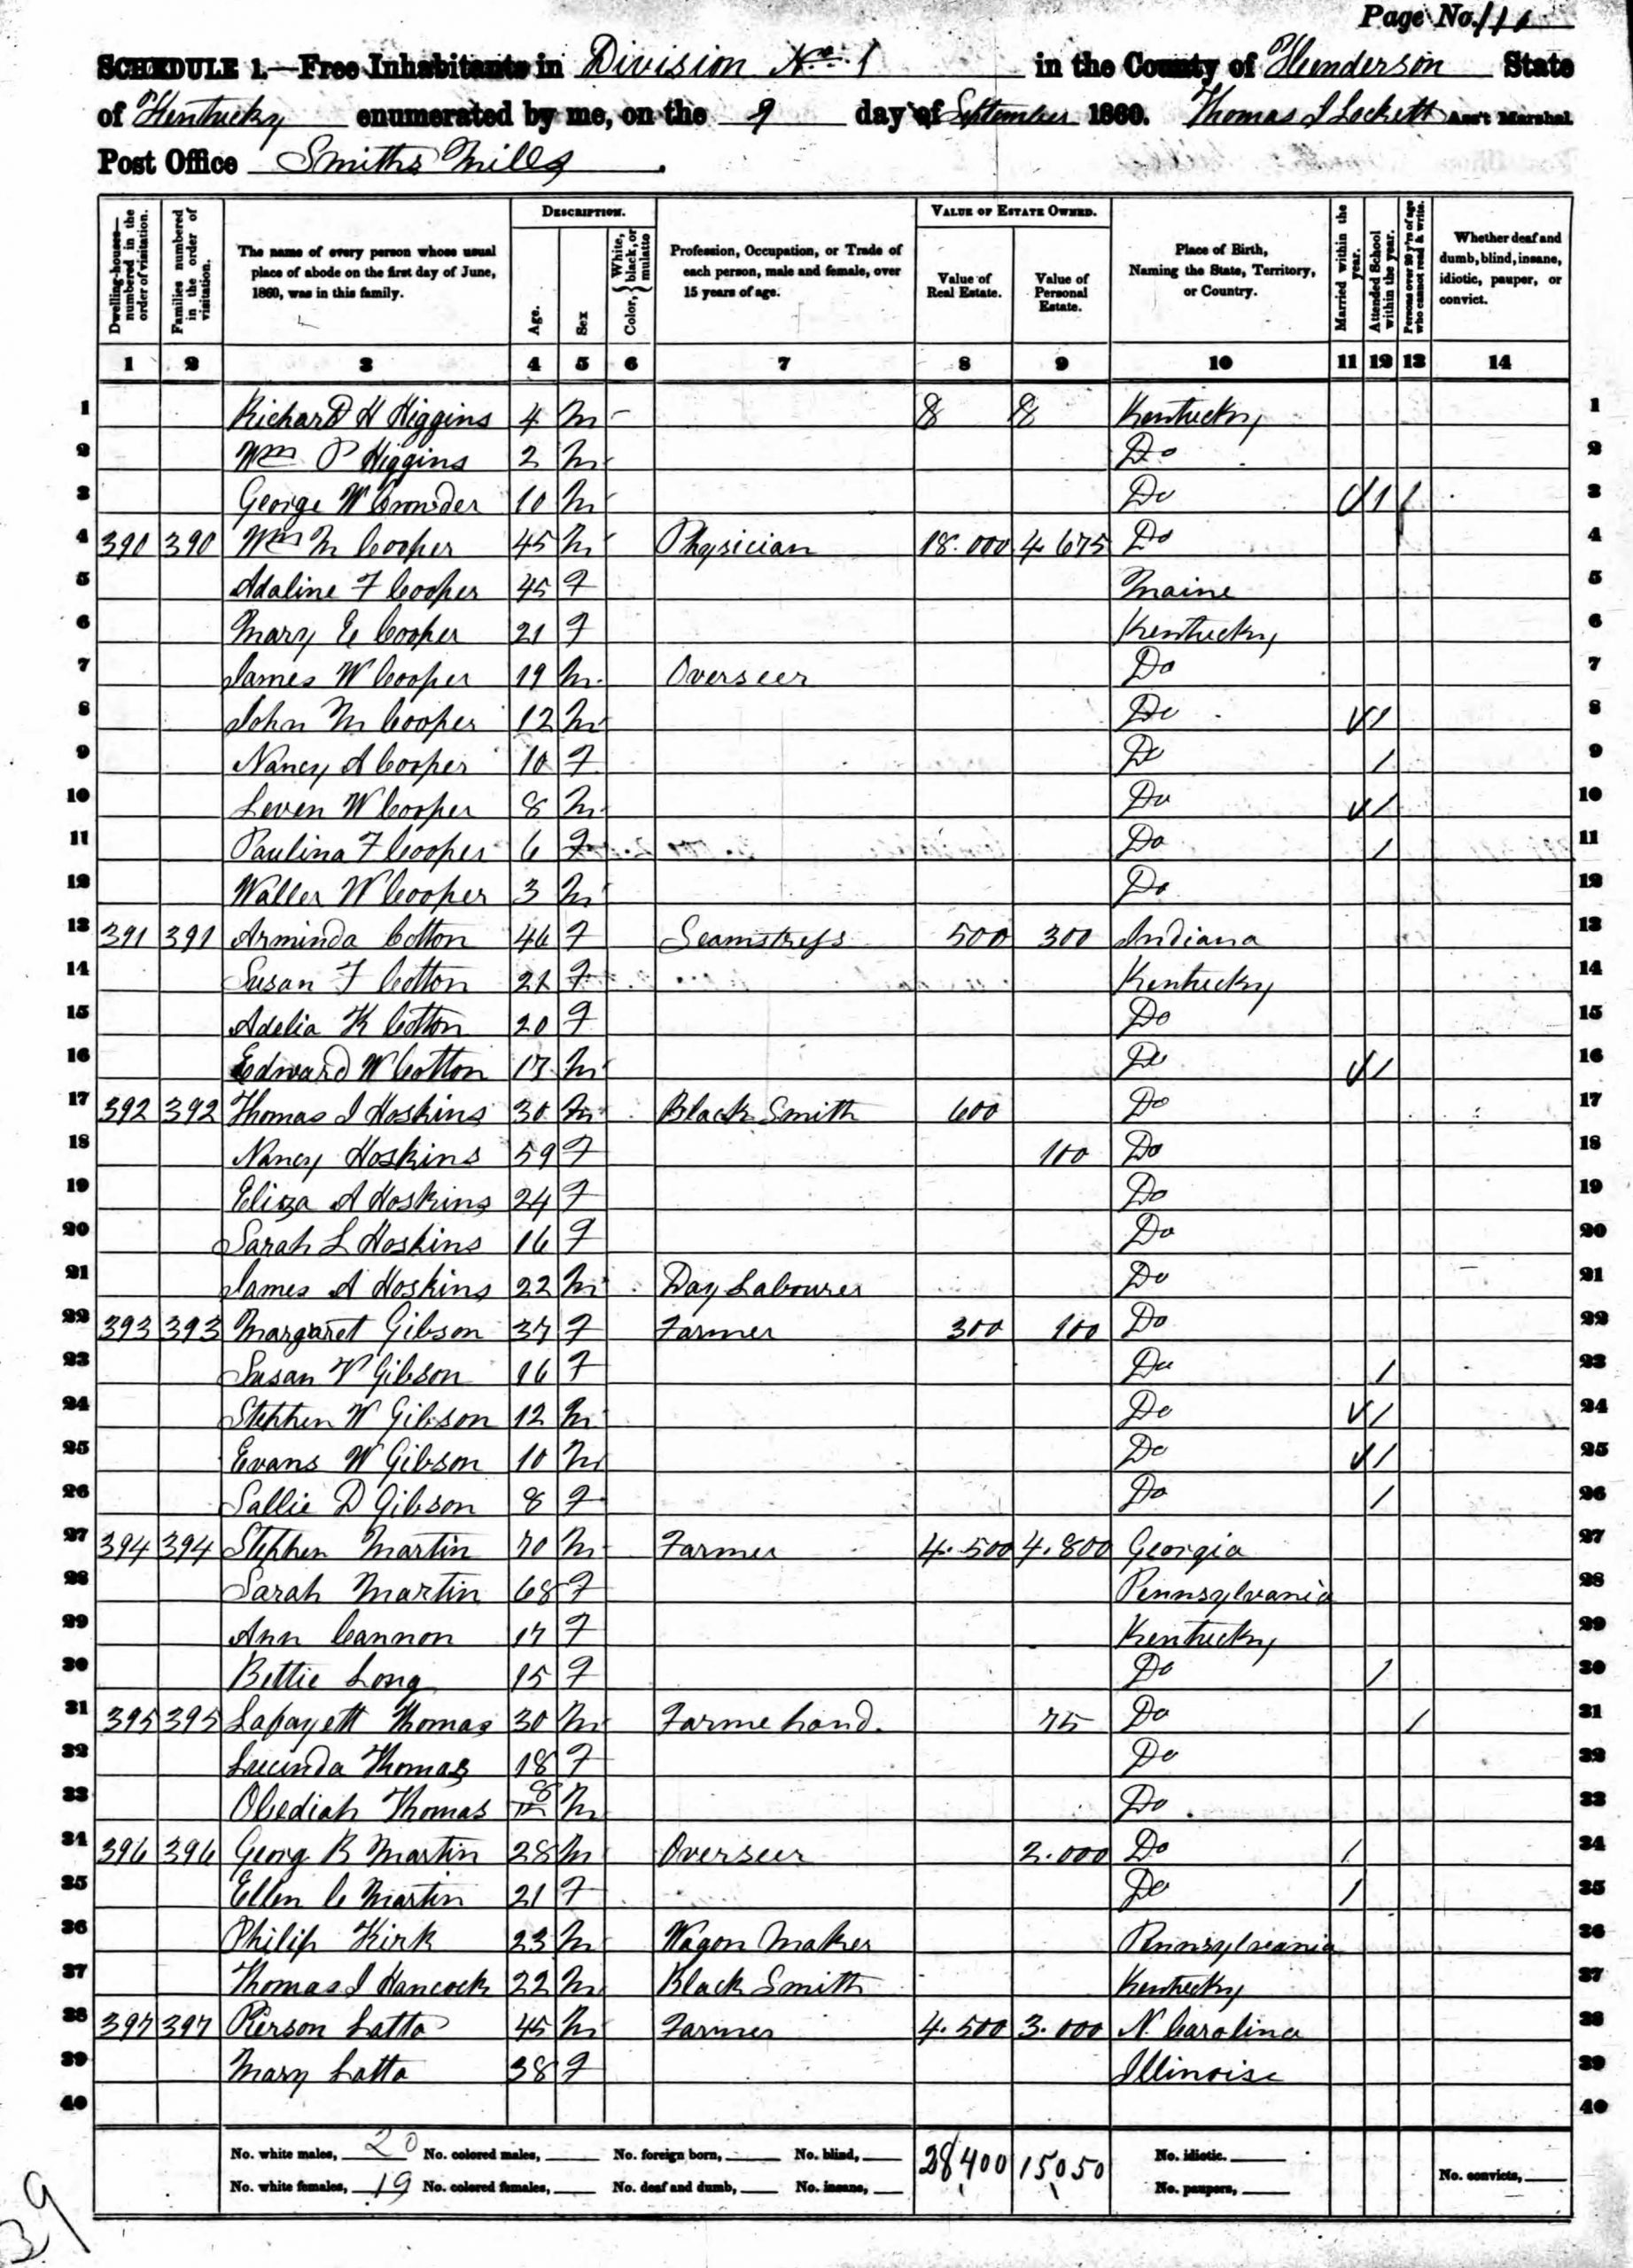 Page No. 110
SCHEDULE 1.—Free Inhabitants in Division No. 1 in the County of Henderson State
of Kentucky enumerated by me, on the 9 day of September 1860. Thomas J Lockett Ass't Marshal.
Post Office Smiths Mills.
Dwelling-houses—numbered in the order of visitation.
Families numbered in the order of visitation.
The name of every person whose usual place of abode on the first day of June, 1860, was in this family.
DESCRIPTION.
Age.
Sex
Color, { White, black, or mulatto
Profession, Occupation, or Trade of each person, male and female, over 15 years of age.
VALUE OF ESTATE OWNED.
Value of Real Estate.
Value of Personal Estate.
Place of Birth, Naming the State, Territory, or Country.
Married within the year.
Attended School within the year.
Persons over 20 y'rs of age who cannot read & write.
Whether deaf and dumb, blind, insane, idiotic, pauper, or convict.
1 2 3 4 5 6 7 8 9 10 11 12 13 14
1 Richard H Higgins 4 M Kentucky 1
2 Wm P Higgins 2 M Do 2
3 George W Crowder 10 M Do / 3
4 390 390 Wm M Cooper 45 M Physician 18.000 4.675 Do 4
5 Adaline F Cooper 45 F Maine 5
6 Mary E Cooper 21 F Kentucky 6
7 James W Cooper 19 M Overseer Do 7
8 John M Cooper 12 M Do / 8
9 Nancy A Cooper 10 F Do / 9
10 Leven W Cooper 8 M Do / 10
11 Paulina F Cooper 6 F Do / 11
12 Waller W Cooper 3 M Do 12
13 391 391 Arminda Cotton 46 F Seamstress 500 300 Indiana 13
14 Susan F Cotton 21 F Kentucky 14
15 Adelia K Cotton 20 F Do 15
16 Edward W Cotton 13 M Do / 16
17 392 392 Thomas J Hoskins 30 M Black Smith 600 Do 17
18 Nancy Hoskins 59 F 100 Do 18
19 Eliza A Hoskins 24 F Do 19
20 Sarah L Hoskins 16 F Do 20
21 James A Hoskins 22 M Day Labourer Do 21
22 393 393 Margaret Gibson 37 F Farmer 300 100 Do 22
23 Susan V Gibson 16 F Do / 23
24 Stephen W Gibson 12 M Do / 24
25 Evans W Gibson 10 M Do / 25
26 Sallie D Gibson 8 F Do / 26
27 394 394 Stephen Martin 70 M Farmer 4.500 4.800 Georgia 27
28 Sarah Martin 68 F Pennsylvania 28
29 Ann Cannon 17 F Kentucky 29
30 Bettie Long 15 F Do / 30
31 395 395 Lafayett Thomas 30 M Farme hand. 75 Do / 31
32 Lucinda Thomas 18 F Do 32
33 Obediah Thomas 8/12 M Do 33
34 396 396 Georg B Martin 28 M Overseer 2.000 Do / 34
35 Ellen C Martin 21 F Do / 35
36 Philip Kirk 23 M Wagon Maker Pennsylvania 36
37 Thomas J Hancock 22 M Black Smith Kentucky 37
38 397 397 Pierson Latta 45 M Farmer 4.500 3.000 N. Carolina 38
39 Mary Latta 38 F Illinoise 39
40 40
No. white males, 20 No. colored males, No. foreign born, No. blind, 28400 15050 No. idiotic.
No. white females, 19 No. colored females, No. deaf and dumb, No. insane, No. paupers, No. convicts,
39